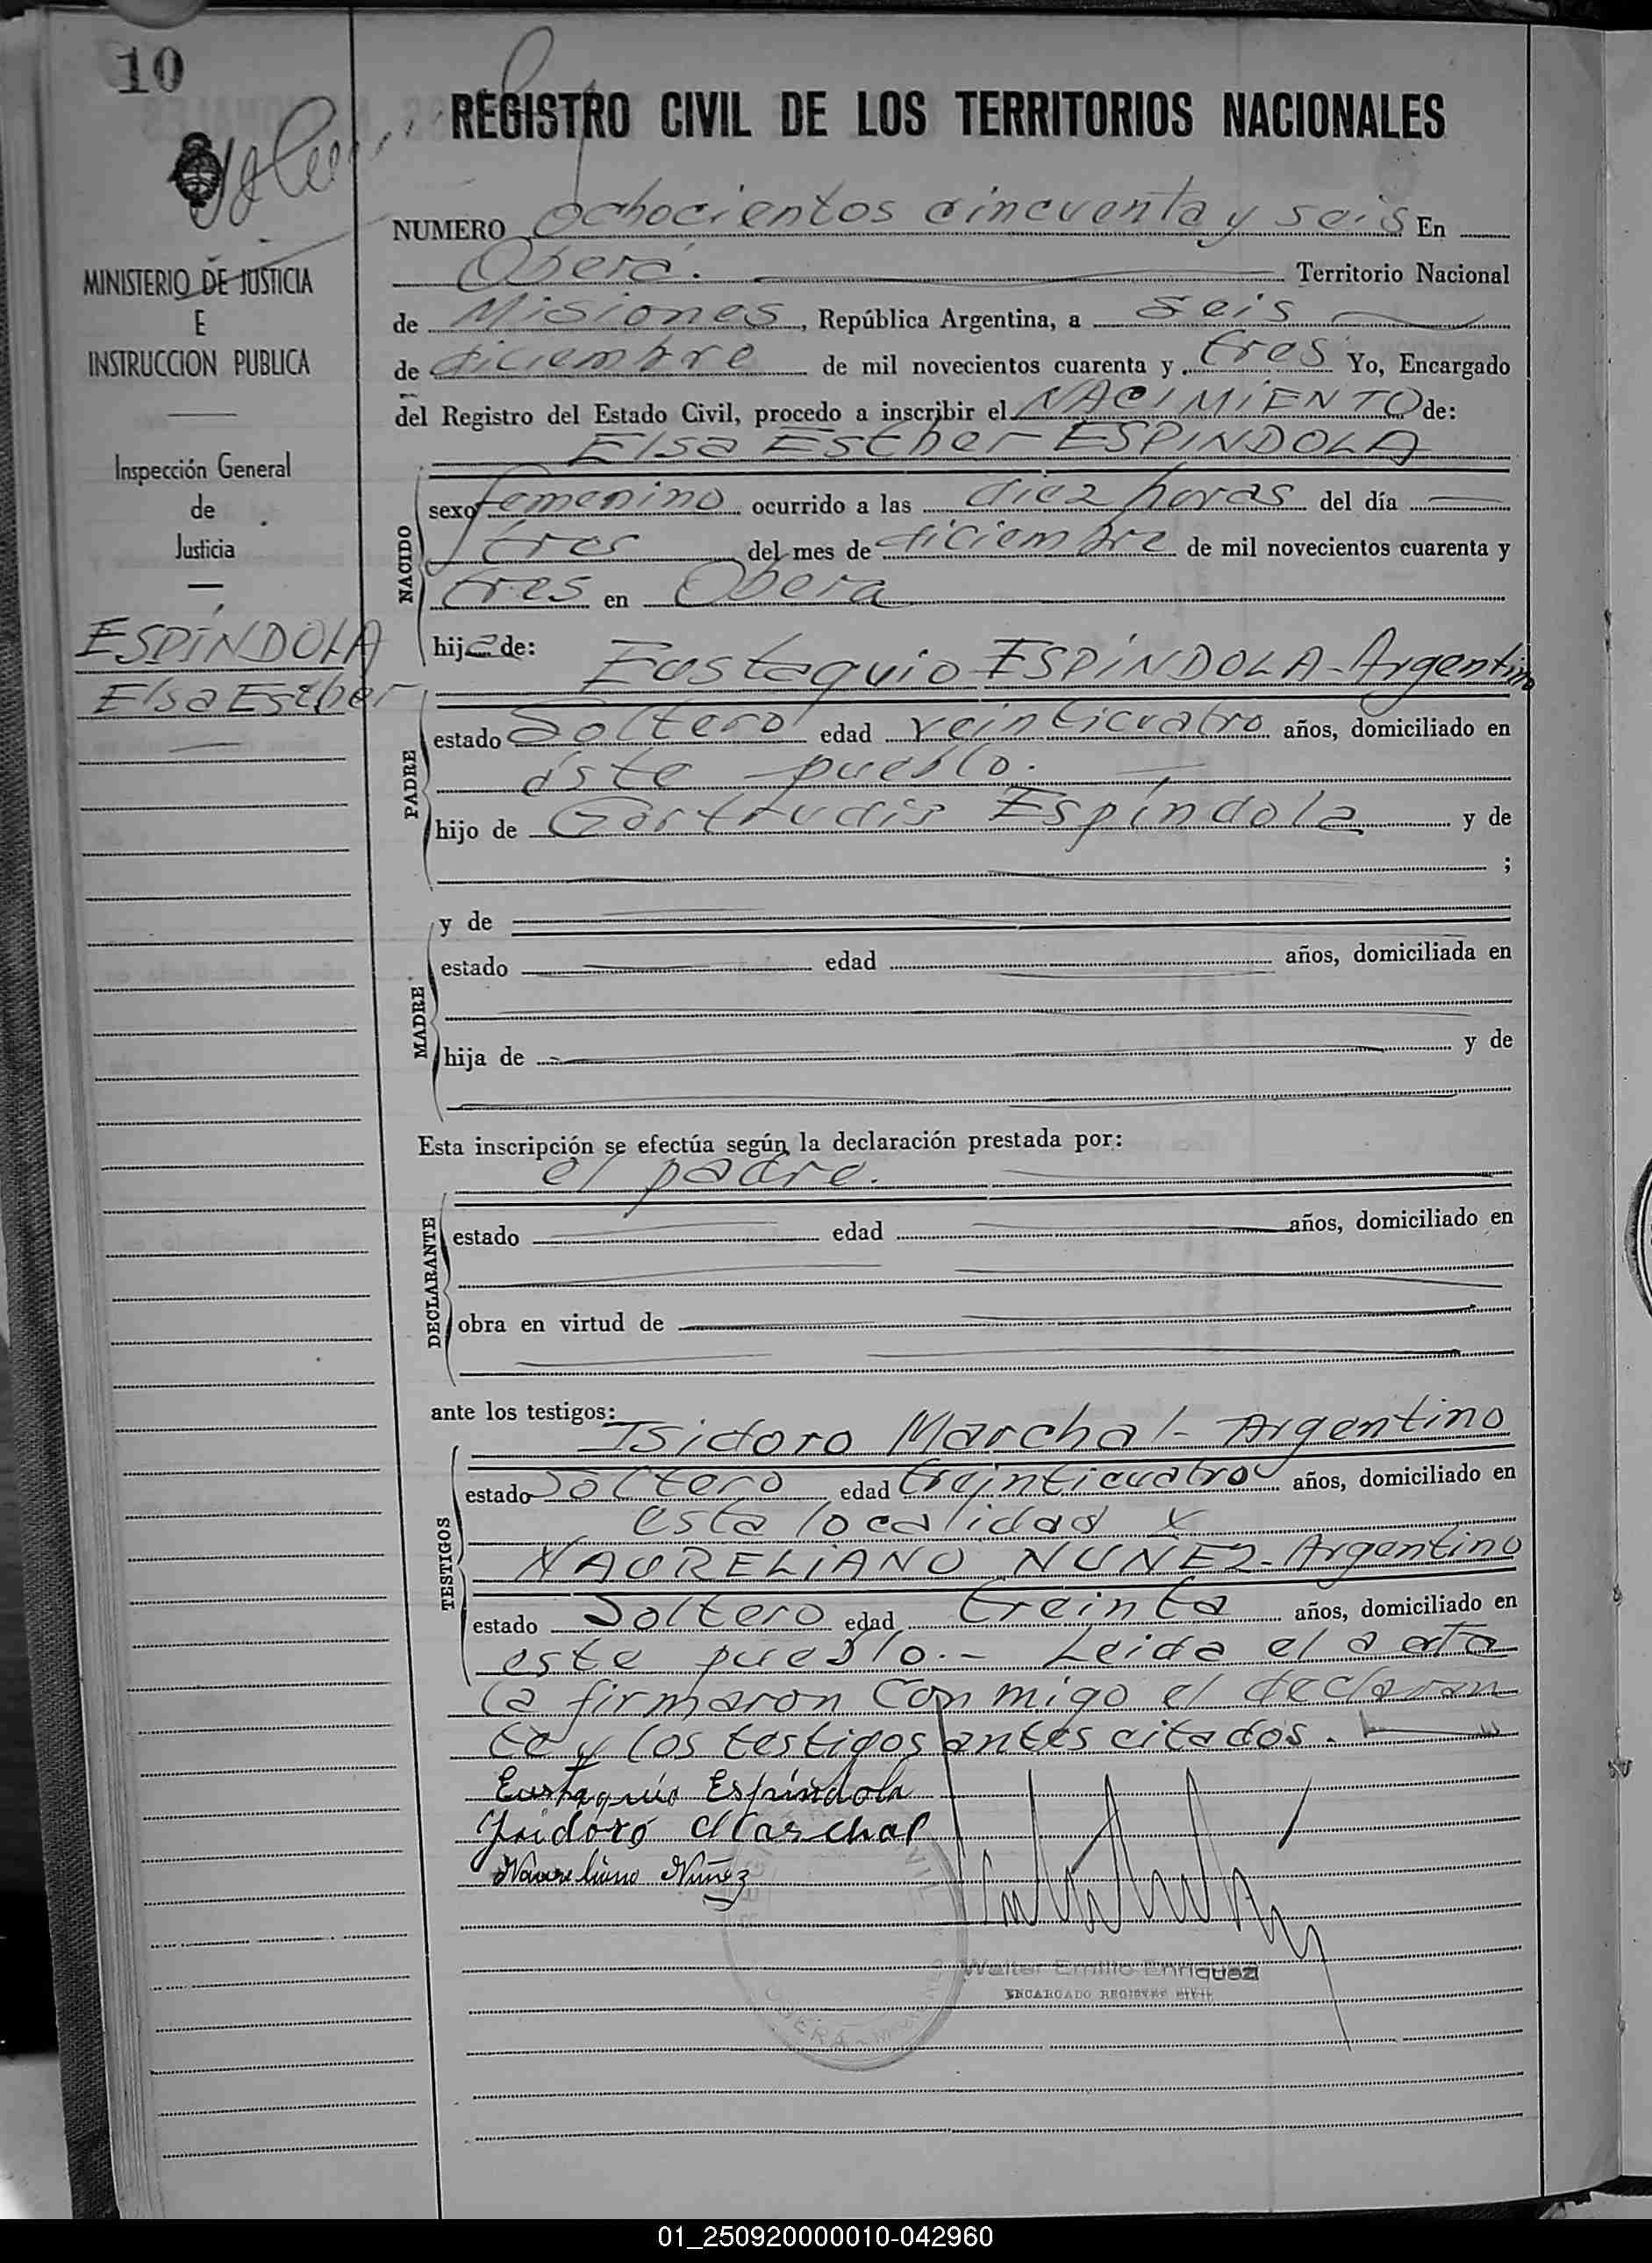 10
REGISTRO CIVIL DE LOS TERRITORIOS NACIONALES
NUMERO Ochocientos cincuenta y seis En
Oberá. Territorio Nacional
de Misiones, República Argentina, a seis
de diciembre de mil novecientos cuarenta y tres Yo, Encargado
del Registro del Estado Civil, procedo a inscribir el NACIMIENTO de:
Elsa Esther ESPINDOLA
NACIDO
sexo femenino ocurrido a las diez horas del día
tres del mes de diciembre de mil novecientos cuarenta y
tres en Obera
hija de: Eustaquio ESPINDOLA - Argentino
PADRE
estado Soltero edad veinticuatro años, domiciliado en
éste pueblo.
hijo de Gertrudis Espíndola y de
;
MADRE
y de
estado edad años, domiciliada en
hija de y de
Esta inscripción se efectúa según la declaración prestada por:
el padre.
DECLARANTE
estado edad años, domiciliado en
obra en virtud de
ante los testigos:
Isidoro Marchal - Argentino
TESTIGOS
estado Soltero edad treinticuatro años, domiciliado en
esta localidad y
NAURELIANO NUNEZ - Argentino
estado Soltero edad treinta años, domiciliado en
este pueblo.- Leida el acta
la firmaron conmigo el declaran
te y los testigos antes citados.
Eustaquio Espíndola
Isidoro Marchal
Naureliano Nuñez
Walter Emilio Enriquez
ENCARGADO REGISTRO CIVIL
OBERA
MINISTERIO DE JUSTICIA
E
INSTRUCCION PUBLICA
Inspección General
de
Justicia
ESPÍNDOLA
Elsa Esther
01_250920000010-042960